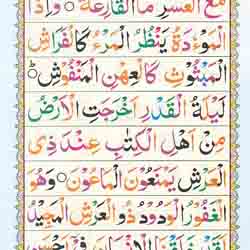 مَعَ الْعُسْرِ مَا الْقَارِعَةُ ۝ وَاِذَا
الْمَوْءٗدَةُ يَنْظُرُ الْمَرْءُ كَالْفَرَاشِ
الْمَبْثُوْثِ كَالْعِهْنِ الْمَنْفُوْشِ ۝ؕ
لَيْلَةُ الْقَدْرِ اَخْرَجَتِ الْاَرْضُ
مِنْ اَهْلِ الْكِتٰبِ عِنْدَ ذِى
الْعَرْشِ يَمْنَعُوْنَ الْمَاعُوْنَ ۝ وَهُوَ
الْغَفُوْرُ الْوَدُوْدُ ذُو الْعَرْشِ الْمَجِيْدُ
لَقَدْ خَلَقْنَا الْاِنْسَانَ فِىْۤ اَحْسَنِ